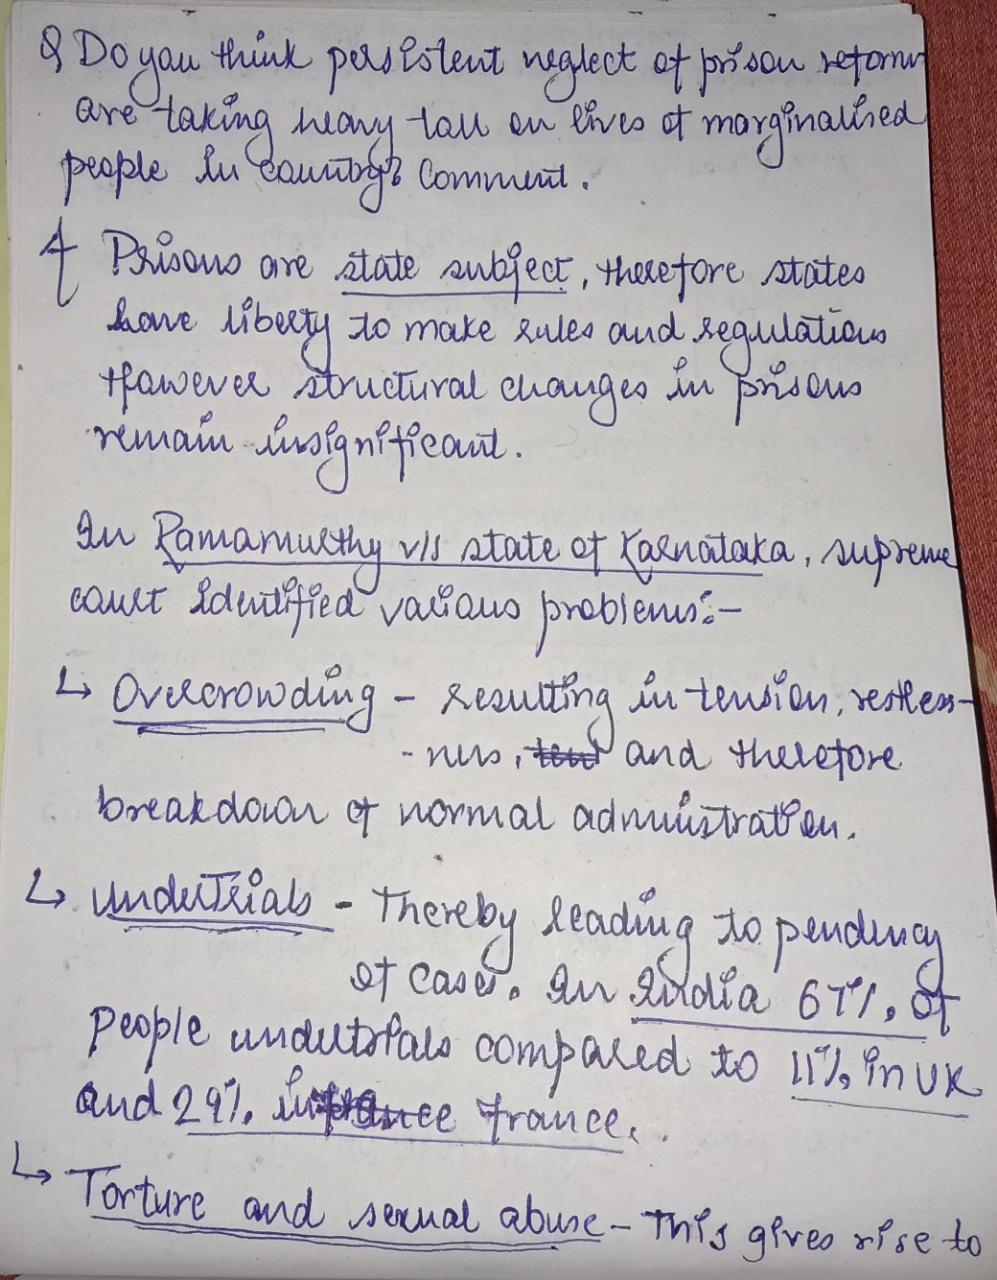 Q Do you think persistent neglect of prison reforms
are taking heavy toll on lives of marginalised
people in country? Comment.
Prisons are state subject, therefore states
have liberty to make rules and regulations
However structural changes in prisons
remain insignificant.
In Ramamurthy v/s state of Karnataka, supreme
court identified various problems:-
↳ Overcrowding - resulting in tension, restless-
-ness, and therefore
breakdown of normal administration.
↳ UnderTrials - Thereby leading to pendency
of cases. In India 67% of
people undertrials compared to 11% in UK
and 29% in france.
↳ Torture and sexual abuse - This gives rise to